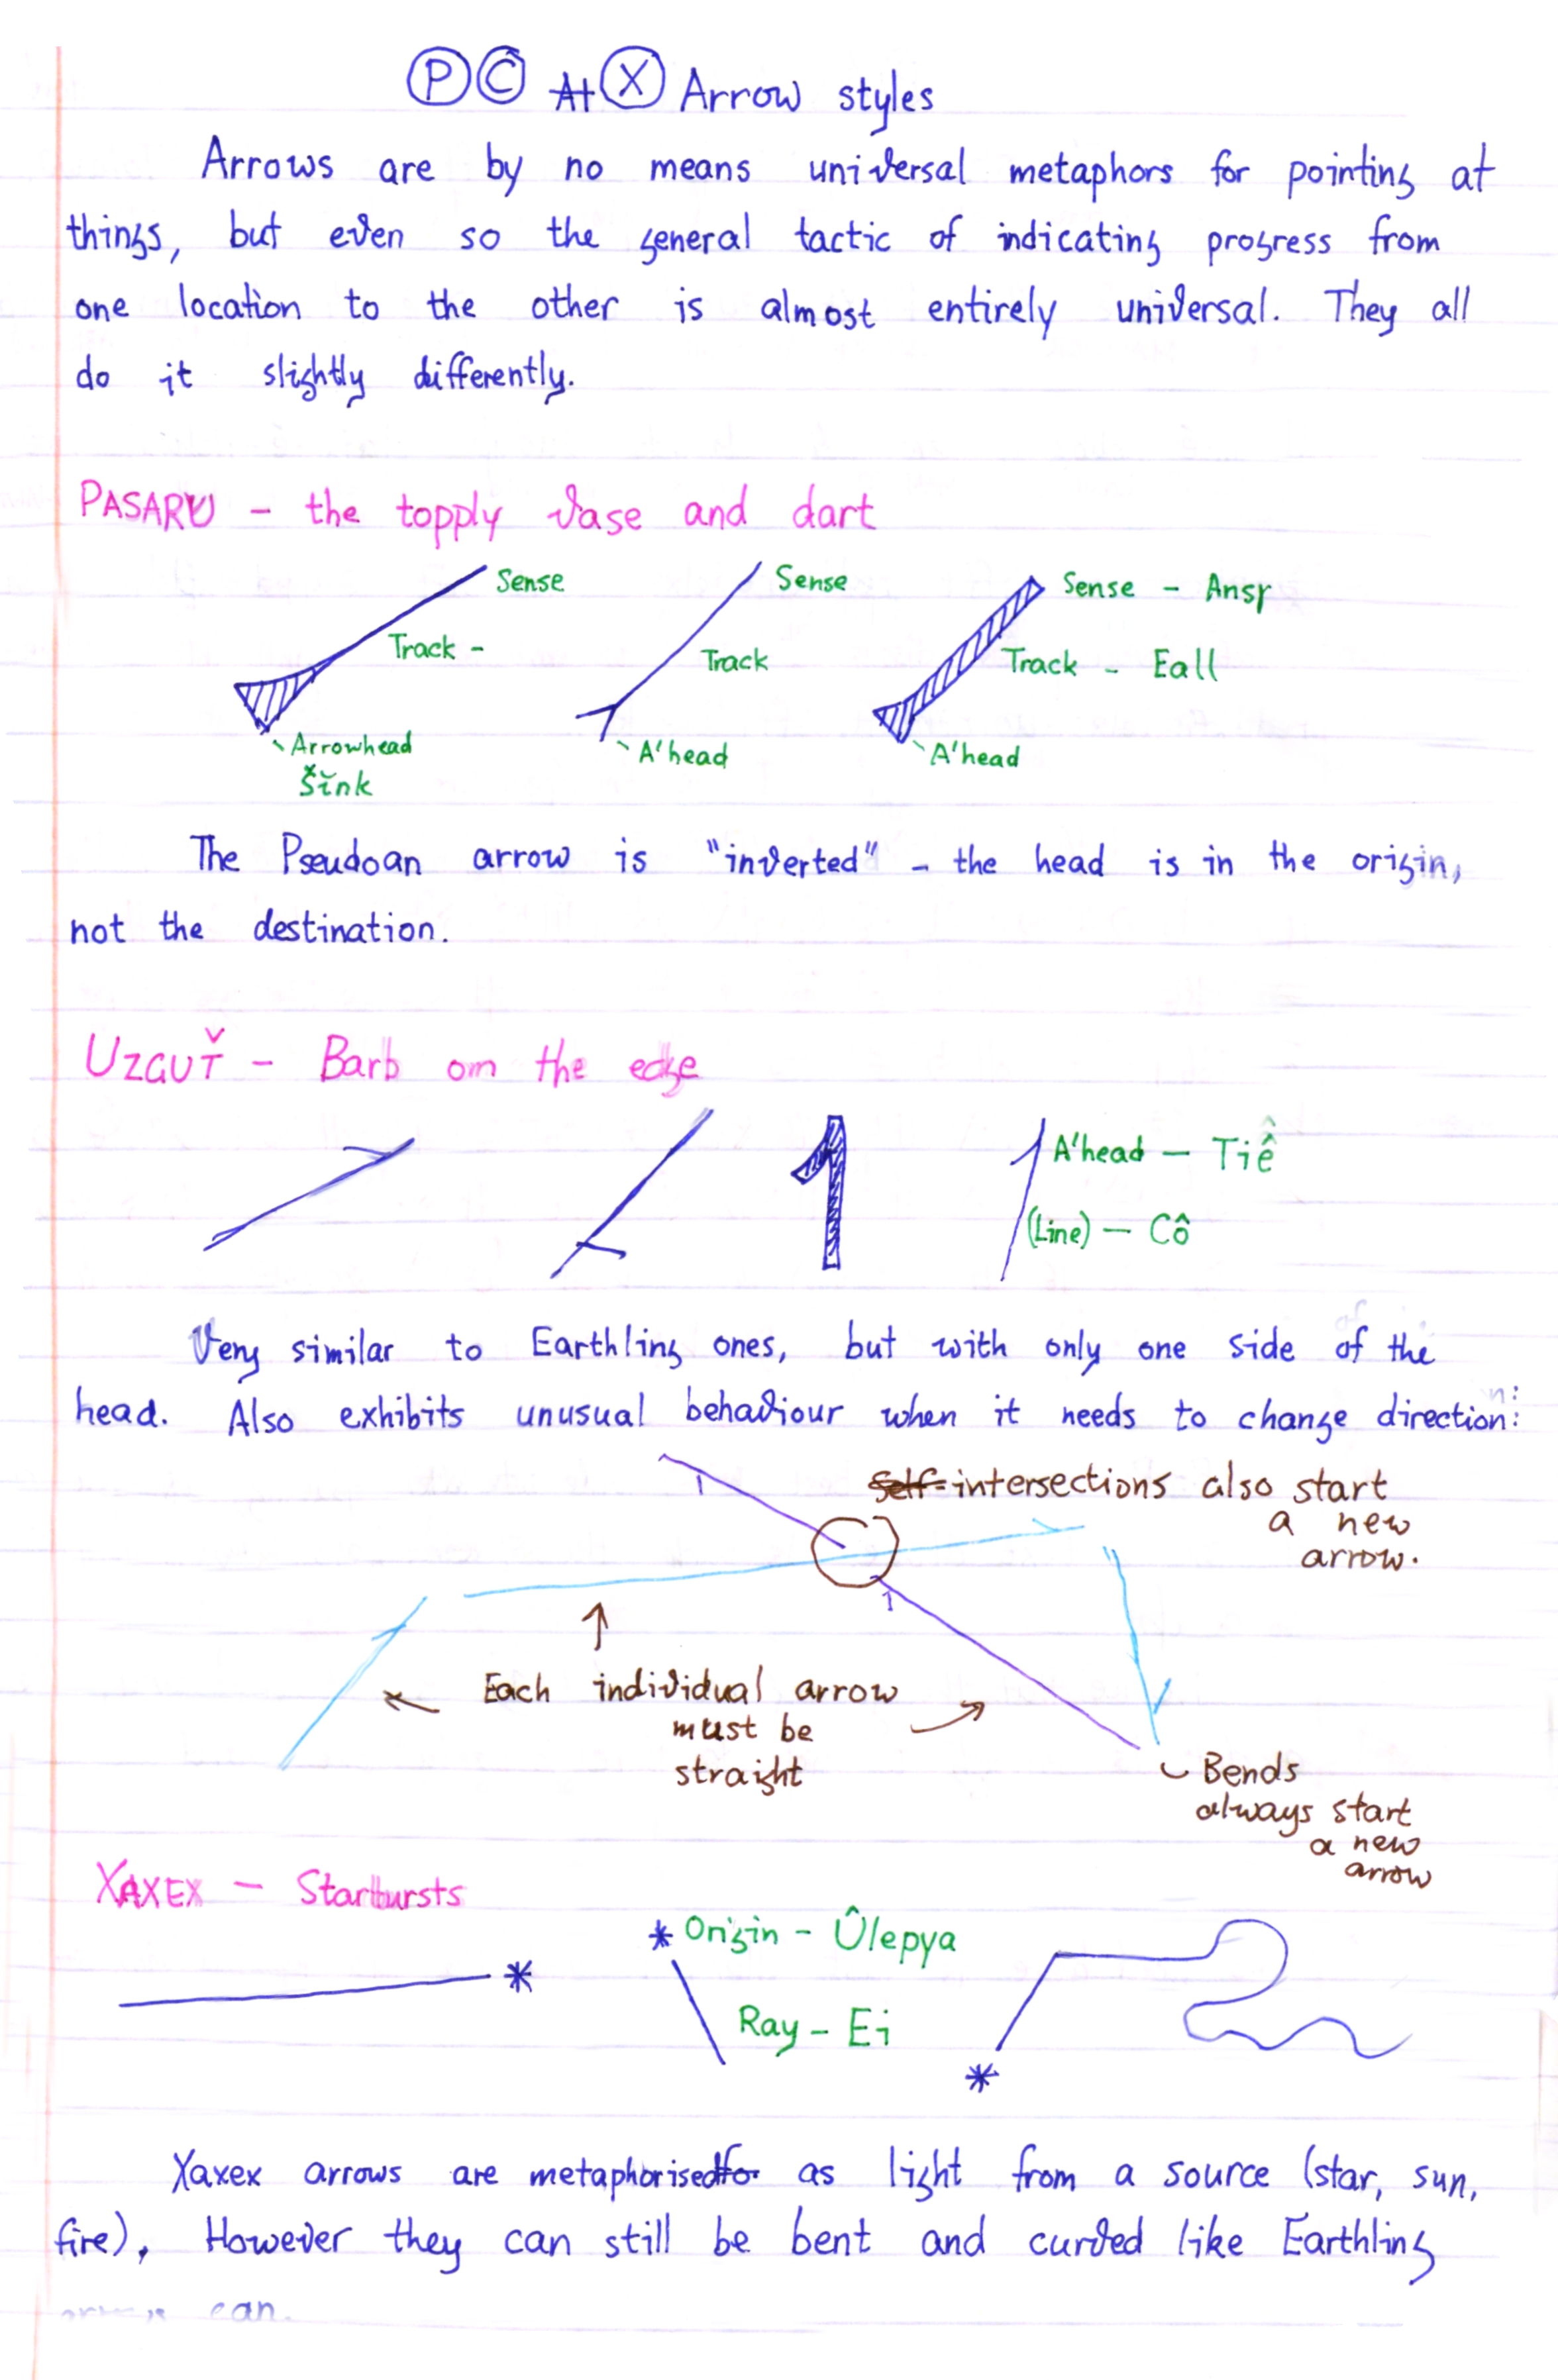 Ⓟ Ⓒ At Ⓧ Arrow styles
Arrows are by no means universal metaphors for pointing at
things, but even so the general tactic of indicating progress from
one location to the other is almost entirely universal. They all
do it slightly differently.
PASARU - the topply vase and dart
Sense
Track -
Arrowhead
Šǐnk
Sense
Track
A'head
Sense - Ansr
Track - Eall
A'head
The Pseudoan arrow is "inverted" - the head is in the origin,
not the destination.
UZGUŤ - Barb om the edge
A'head - Tiê
(Line) - Cô
Very similar to Earthling ones, but with only one side of the
head. Also exhibits unusual behaviour when it needs to change direction:
self-intersections also start
a new
arrow.
Each individual arrow
must be
straight
Bends
always start
a new
arrow
XAXEX - Starbursts
Origin - Ûlepya
Ray - Ei
Xaxex arrows are metaphorised for as light from a source (star, sun,
fire), However they can still be bent and curved like Earthling
can.